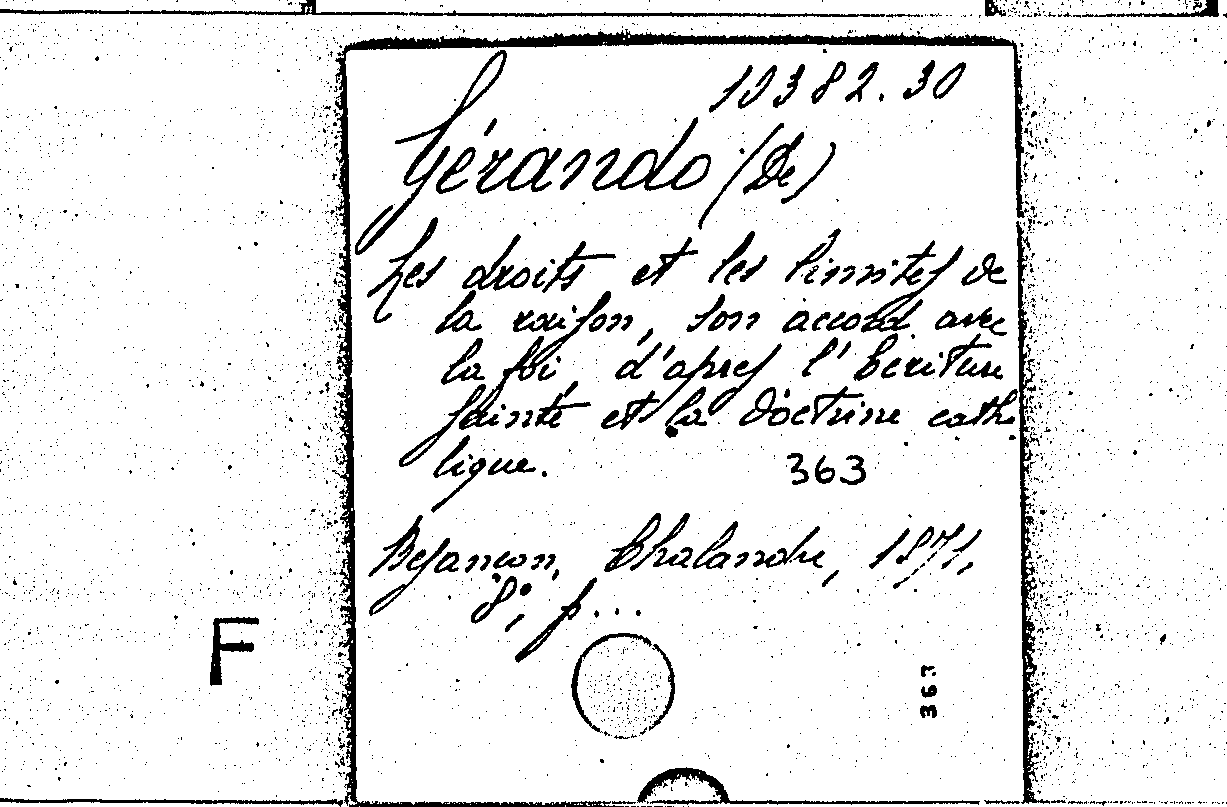 19382.30
Gérando (De)
Les droits et les limites de
la raison, son accord avec
la foi, d'après l'Ecriture
Sainte et la doctrine catho
lique.
363
Besançon, Chalandre, 1871,
8°, p...
F
363